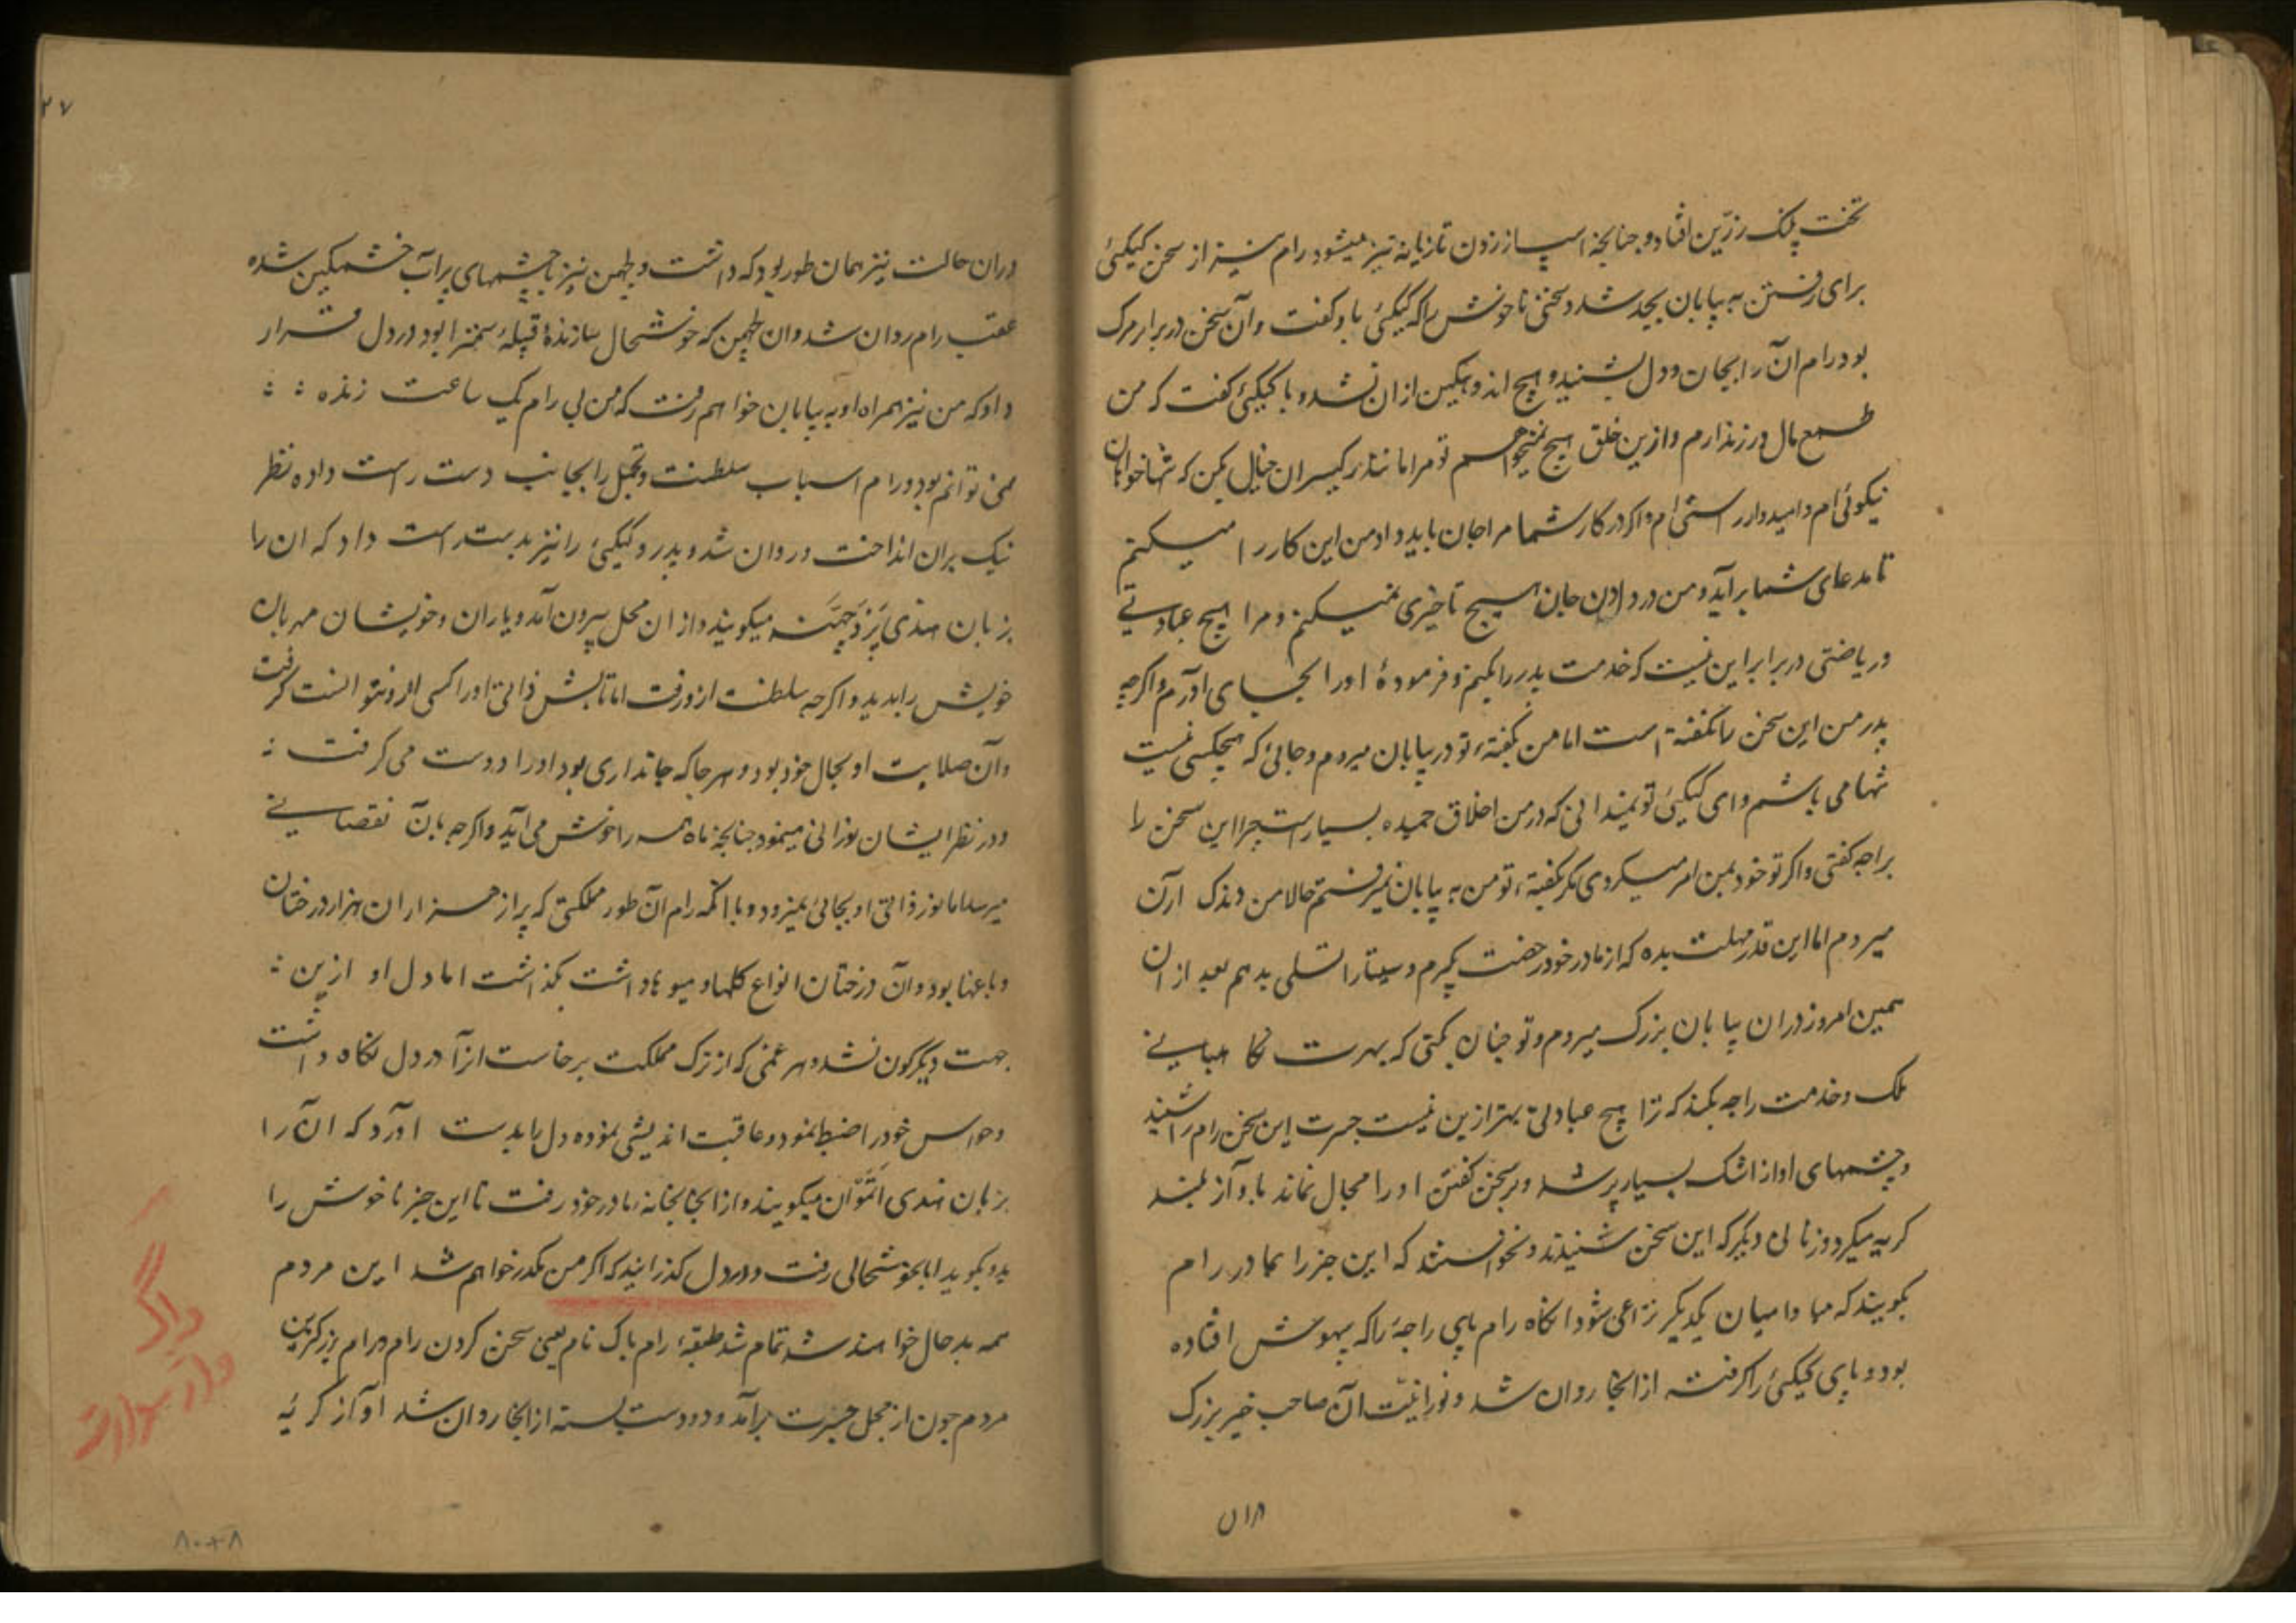 تخت پلنک رزّین افتاد و جنانجه اسپ از زدن تازیانه تیز میشود رام نیز از سخن کیکیئ
برای رفتن به بیابان بجد شد و سخنی ناخوش را که کیکیئ باو کفت وآن سخن در برابر مرک
بود رام آن را بجان و دل بشنید و هیج اندوهکین ازان نشد و با کیکیئ کفت که من
طمع مال و زر ندارم و ازین خلق هیج نمیخواهم تو مرا مانند دیکران خیال مکن که شما خواهان
نیکوئی ام و امیدوار راستی ام و اکر در کار شما مرا جان باید داد من این کار را میکنم
تا مدعای شما برآید و من در دادن جان هیج تاخیری نمیکنم و مرا هیج عبادتی
و ریاضتی در برابر این نیست که خدمت پدر را بکنم و فرمودهٔ او را بجای آورم و اکرجه
پدر من این سخن را نکفته است اما من بکفتهٔ تو در بیابان میروم و جائی که هیجکس نیست
تنها می باشم و ای کیکیئ تو نمیدانی که در من اخلاق حمیده بسیار است جرا این سخن را
براجه کفتی و اکر تو خود بمن امر میکردی مکر بکفتهٔ تو من به بیابان نمیرفتم حالا من
میروم اما این قدر مهلت بده که از مادر خود رخصت بکیرم و سیتا را تسلی بدهم بعد ازان
همین امروز دران بیابان بزرک میروم و تو جنان بکنی که بهرت نکاهبانی
ملک و خدمت راجه بکند که ترا هیج عبادتی بهتر ازین نیست جسرت این سخن رام را شنید
و چشمهای او از اشک بسیار پر شد و بر سخن کفتن او را مجال نماند با آواز بلند
کریه میکرد و زنانی دیکر که این سخن شنیدند و نخواستند که این جز را بمادر رام
بکویند که مبادا میان یکدیکر نزاعی شود انکاه رام پای راجهٔ را که بیهوش افتاده
بود و پای کیکیئ را کرفته از انجا روان شد و نورانیت آن صاحب خیر بزرک
۵۱۸
۲۷
دران حالت نیز همان طور بود که داشت و لچمن نیز با چشمهای پرآب خشمکین شده
عقب رام روان شد و ان لچمن که خوشحال سازندهٔ قبیلهٔ سمترا بود در دل قرار
داد که من نیز همراه او به بیابان خواهم رفت که من بی رام یک ساعت زنده
نمی توانم بود و رام اسباب سلطنت و تجمل را بجانب دست راست داده نظر
نیک بران انداخت و روان شد و پدر و کیکیئ را نیز بدست راست داد که ان را
بزبان هندی پَرْدَچھَنَه میکویند و ازان محل بیرون آمد و یاران و خویشان مهربان
خویش را بدید و اکرجه سلطنت ازو رفت اما تابش ذاتی او را کسی ازو نتوانست کرفت
وآن صلابت او بحال خود بود و هرجا که جانداری بود او را دوست می کرفت
و در نظر ایشان نورانی مینمود جنانجه ماه همه را خوش می آید و اکرجه بآن نقصانی
میرسد اما نور ذاتی او بجائی نمیرود و با آنکه رام آن طور مملکتی که پر از هزاران هزار درختان
و باغها بود و آن درختان انواع کلها و میوها داشت بکذاشت اما دل او ازین
جهت دیکرکون نشد و هر غمی که از ترک مملکت برخاست ازآ در دل نکاه داشت
و حواس خود را ضبط نمود و عاقبت اندیشی نموده دل را بدست آورد که ان را
بزبان هندی اَتْمَوَان میکویند و از انجا بخانهٔ مادر خود رفت تا این جز ناخوش را
بدو بکوید اما بخوشحالی رفت و در دل کذرانید که اکر من مکدر خواهم شد این مردم
همه بد حال خواهند شد تمام شد طبقهٔ رام باک نام یعنی سخن کردن رام
مردم جون از محل جسرت برآمد و دو دست بسته از انجا روان شد آواز کریهٔ
۸۰۰۸